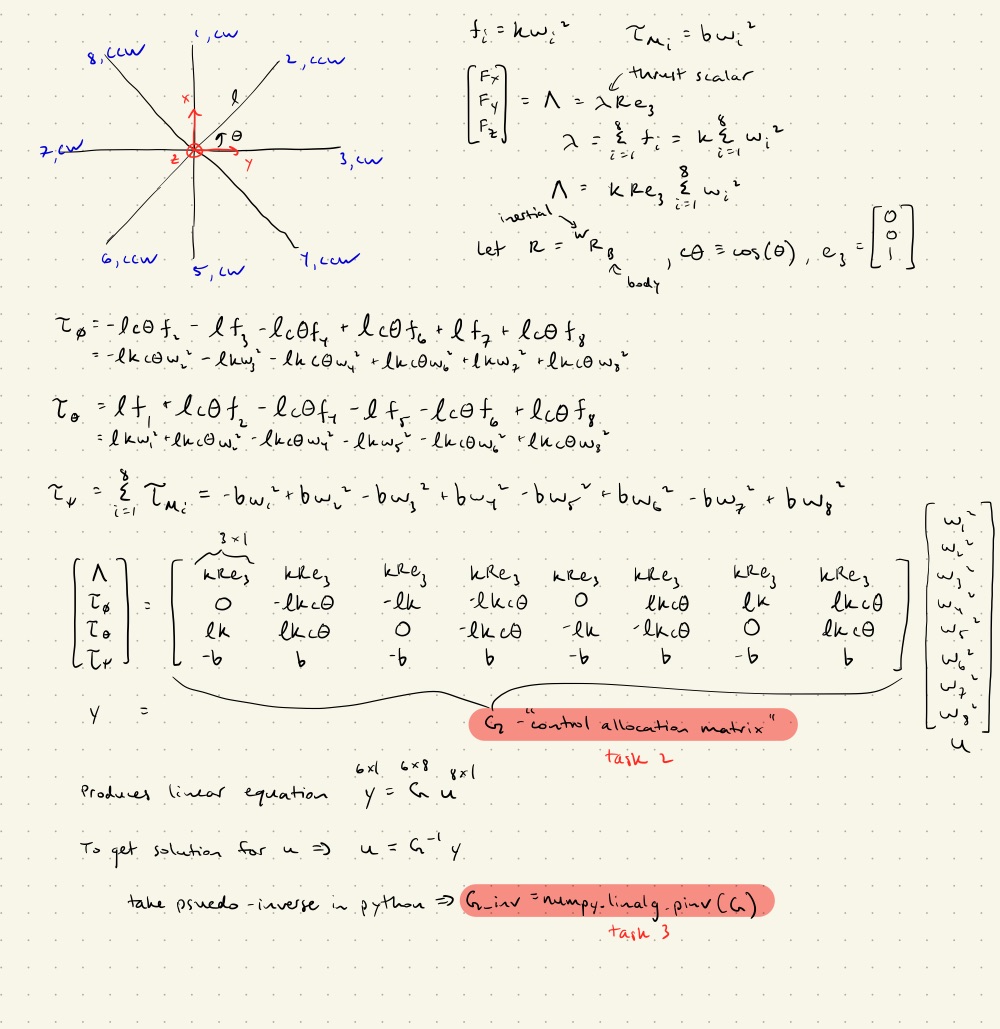 1, CW
8, CCW
2, CCW
l
x
θ
7, CW
z
y
3, CW
6, CCW
5, CW
4, CCW
fᵢ = kwᵢ² τ_Mᵢ = bwᵢ²
thrust scalar
[Fx Fy Fz] = Λ = λRe₃
λ = Σᵢ₌₁⁸ fᵢ = k Σᵢ₌₁⁸ wᵢ²
Λ = kRe₃ Σᵢ₌₁⁸ wᵢ²
inertial
Let R = ᵂR_B, cθ ≡ cos(θ), e₃ = [0 0 1]
body
τ_φ = -lcθf₂ - lf₃ - lcθf₄ + lcθf₆ + lf₇ + lcθf₈
= -lkcθw₂² - lkw₃² - lkcθw₄² + lkcθw₆² + lkw₇² + lkcθw₈²
τ_θ = lf₁ + lcθf₂ - lcθf₄ - lf₅ - lcθf₆ + lcθf₈
= lkw₁² + lkcθw₂² - lkcθw₄² - lkw₅² - lkcθw₆² + lkcθw₈²
τ_ψ = Σᵢ₌₁⁸ τ_Mᵢ = -bw₁² + bw₂² - bw₃² + bw₄² - bw₅² + bw₆² - bw₇² + bw₈²
3x1
Λ kRe₃ kRe₃ kRe₃ kRe₃ kRe₃ kRe₃ kRe₃ kRe₃
τ_φ = 0 -lkcθ -lk -lkcθ 0 lkcθ lk lkcθ
τ_θ lk lkcθ 0 -lkcθ -lk -lkcθ 0 lkcθ
τ_ψ -b b -b b -b b -b b
w₁²
w₂²
w₃²
w₄²
w₅²
w₆²
w₇²
w₈²
u
y =
G - "control allocation matrix"
task 2
6x1 6x8 8x1
Produces linear equation y = G u
To get solution for u ⇒ u = G⁻¹ y
take psuedo-inverse in python ⇒ G_inv = numpy.linalg.pinv(G)
task 3